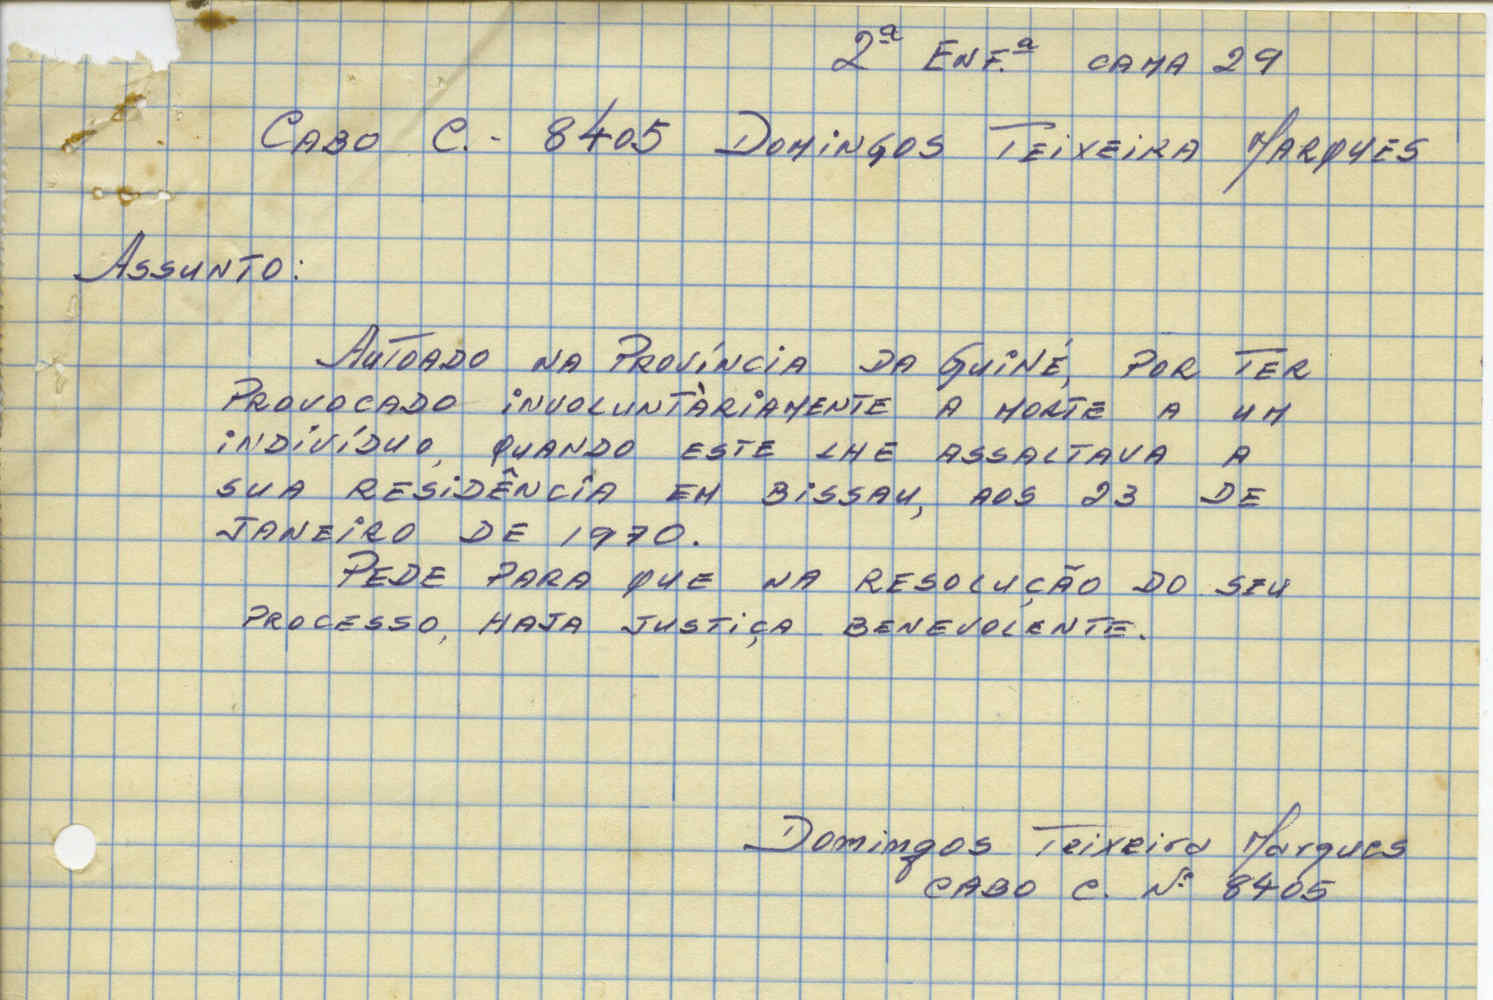 2ª ENF.ª CAMA 29
CABO C. - 8405 DOMINGOS TEIXEIRA MARQUES
ASSUNTO:
AUTOADO NA PROVÍNCIA DA GUINÉ, POR TER
PROVOCADO INVOLUNTÀRIAMENTE A MORTE A UM
INDIVÍDUO, QUANDO ESTE LHE ASSALTAVA A
SUA RESIDÊNCIA EM BISSAU, AOS 23 DE
JANEIRO DE 1970.
PEDE PARA QUE NA RESOLUÇÃO DO SEU
PROCESSO, HAJA JUSTIÇA BENEVOLENTE.
Domingos Teixeira Marques
CABO C. Nº 8405